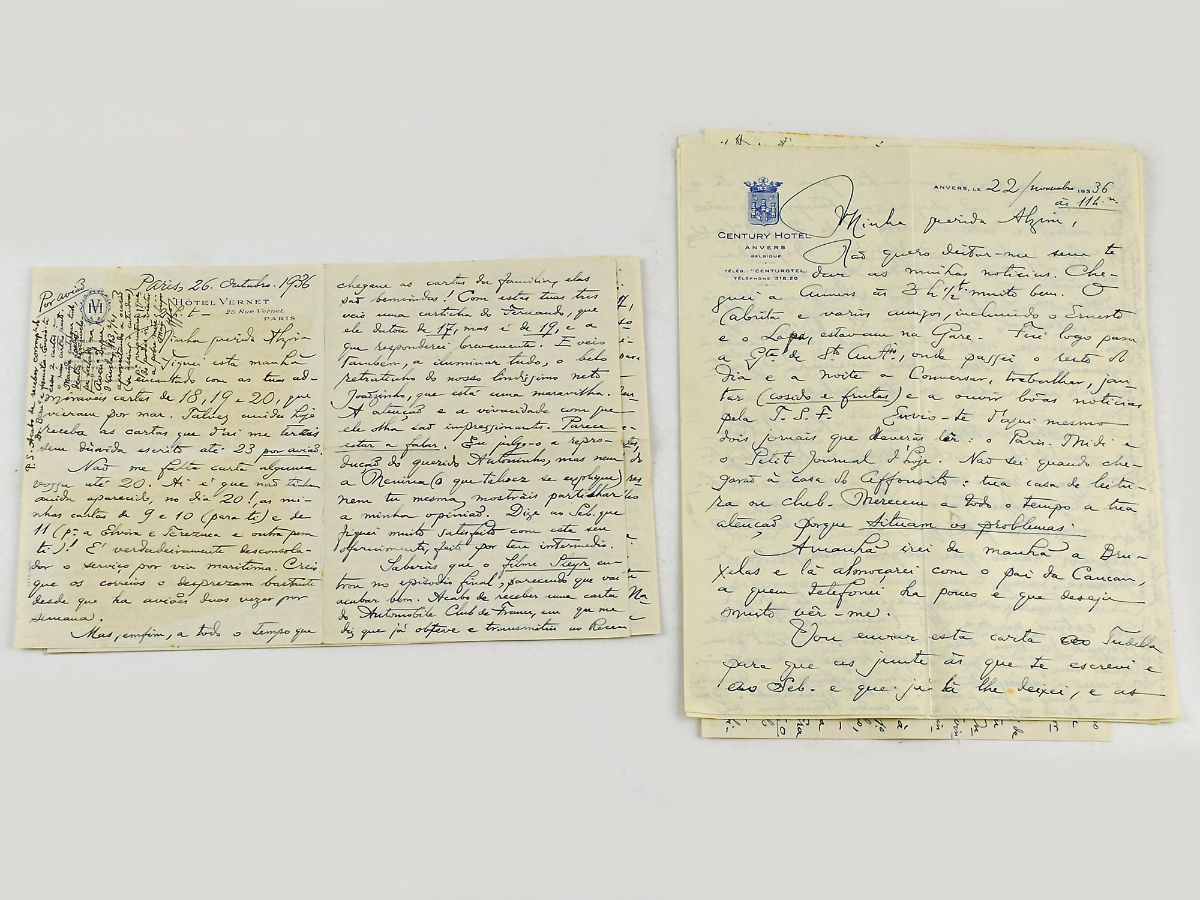 Por avião
Paris, 26, Outubro, 1936
HM
HOTEL VERNET
25, Rue Vernet
PARIS
Minha querida Alzira
Fiquei esta manhã
encantado com as tuas ad-
miráveis cartas de 18, 19 e 20, que
vieram por mar. Talvez ainda hoje
receba as cartas que daí me terás
sem dúvida escrito até 23 por avião.
Não me falta carta alguma
vossa até 20. Aí é que não tinham
ainda aparecido, no dia 20!, as mi-
nhas cartas de 9 e 10 (para ti) e de
11 (pª a Elvira e Terezuca e outra para
ti)! É verdadeiramente desconsola-
dor o serviço por via marítima. Creio
que os correios o desprezam bastante
desde que ha aviões duas vezes por
semana.
Mas, emfim, a todo o tempo que
cheguem as cartas da família, elas
são bemvindas! Com estas tuas tres
veio uma cartinha do Fernando, que
ele datou de 17, mas é de 19, e a
que responderei brevemente. E veio
tambem, a iluminar tudo, o belo
retratinho do nosso lindissimo neto
Joãozinho, que está uma maravilha.
A atenção e a vivacidade com que
ele olha são impressionantes. Parece
estar a falar. Eu julgo-o a repro-
dução do querido Antoninho, mas nem
a Menina (o que talvez se explique)
nem tu mesma mostrais partilhar
a minha opinião. Dize ao Seb. que
fiquei muito satisfeito com este seu
oferecimento, feito por teu intermedio.
Saberás que o filme Steyr en-
trou no episodio final, parecendo que vai
acabar bem. Acabo de receber uma carta
do Automobile Club de France, em que me
diz que já obteve e transmitiu ao
CENTURY HOTEL
ANVERS
BELGIQUE
TÉLÉG. "CENTUROTEL"
TÉLÉPHONE 318,20
ANVERS, LE 22/novembro 1936
ás 11 h. n.
Minha querida Alzira,
Não quero deitar-me sem te
dar as minhas noticias. Che-
guei a Anvers ás 3 h ½ muito bem. O
Cabrita e varios amigos, incluindo o Ernesto
e o Lapa, estavam na Gare. Fui logo para
a de Stº, onde passei o resto do
dia e a noite a conversar, trabalhar, jan-
tar (cosido e frutas) e a ouvir bôas noticias
pela T. S. F. Envio-te daqui mesmo
dois jornais que deverás lêr: o Paris-Midi e
o Petit Journal d'hoje. Não sei quando che-
garão á casa do Affonsito: tua casa de leitu-
ra ou club. Merecem a todo o tempo a tua
atenção, porque situam os problemas.
Amanhã irei de manhã a Bru-
xelas e lá almoçarei com o pai da
a quem telefonei ha pouco e que deseja
muito vêr-me.
Vou enviar esta carta ao Tudella
para que as junte ás que te escrevi e
ao Seb. e que já lá lhe deixei, e as